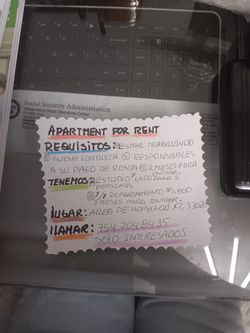 Social Security Administration
APARTMENT FOR RENT
REQUISITOS: ESTAR TRABAJANDO
BUENA CONDUCTA RESPONSABLES
A SU PAGO DE RENTA 2 MESES PARA
ENTRAR
TENEMOS: ESTUDIO $1,400 PARA 2
PERSONAS
1/1 DEPARTAMENTO $1,800
2 MESES PARA ENTRAR
LUGAR: AREA DE HOLLYWOOD Fl, 33020
LLAMAR: 754 204 8435
SOLO INTERESADOS